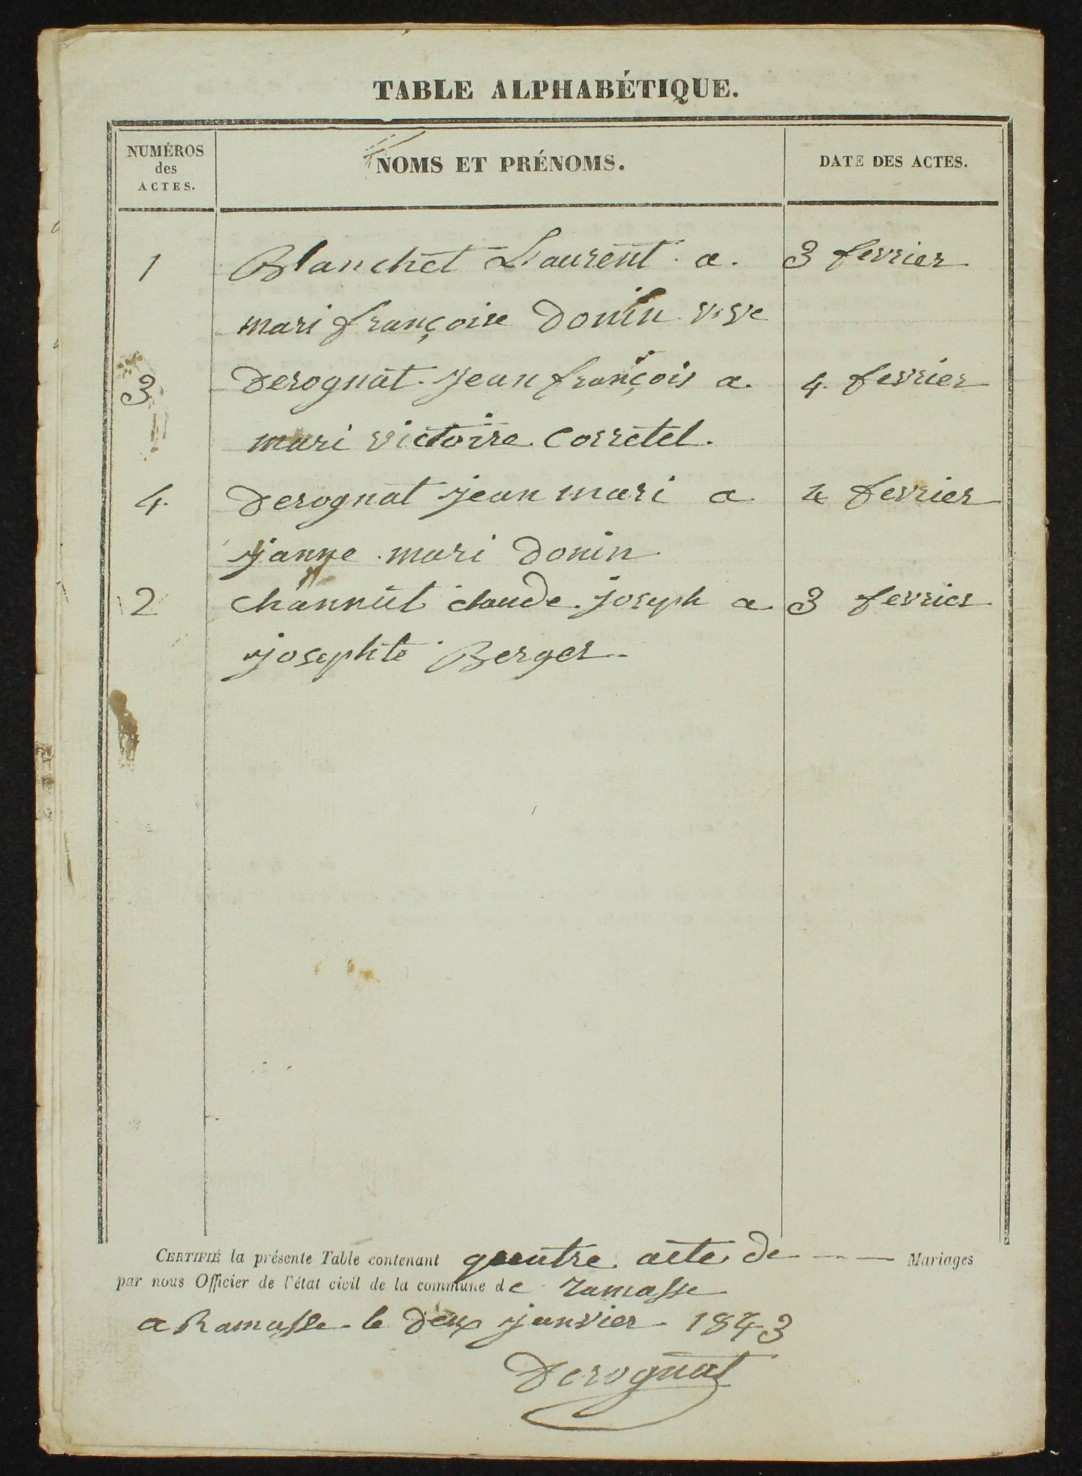 TABLE ALPHABÉTIQUE.
NUMÉROS
des
ACTES.
NOMS ET PRÉNOMS.
DATE DES ACTES.
1 Blanchet Laurent a. 3 fevrier
mari françoise Donin vve
3 Derognat jean françois a. 4 fevrier
mari victoire Corretel.
4. Derognat jean mari a 4 fevrier
janne mari Donin
2 channut claude joseph a 3 fevrier
josephte Berger
CERTIFIÉ la présente Table contenant quatre acte de Mariages
par nous Officier de l'état civil de la commune de ramasse
a Ramasse le deux janvier 1843
Derognat